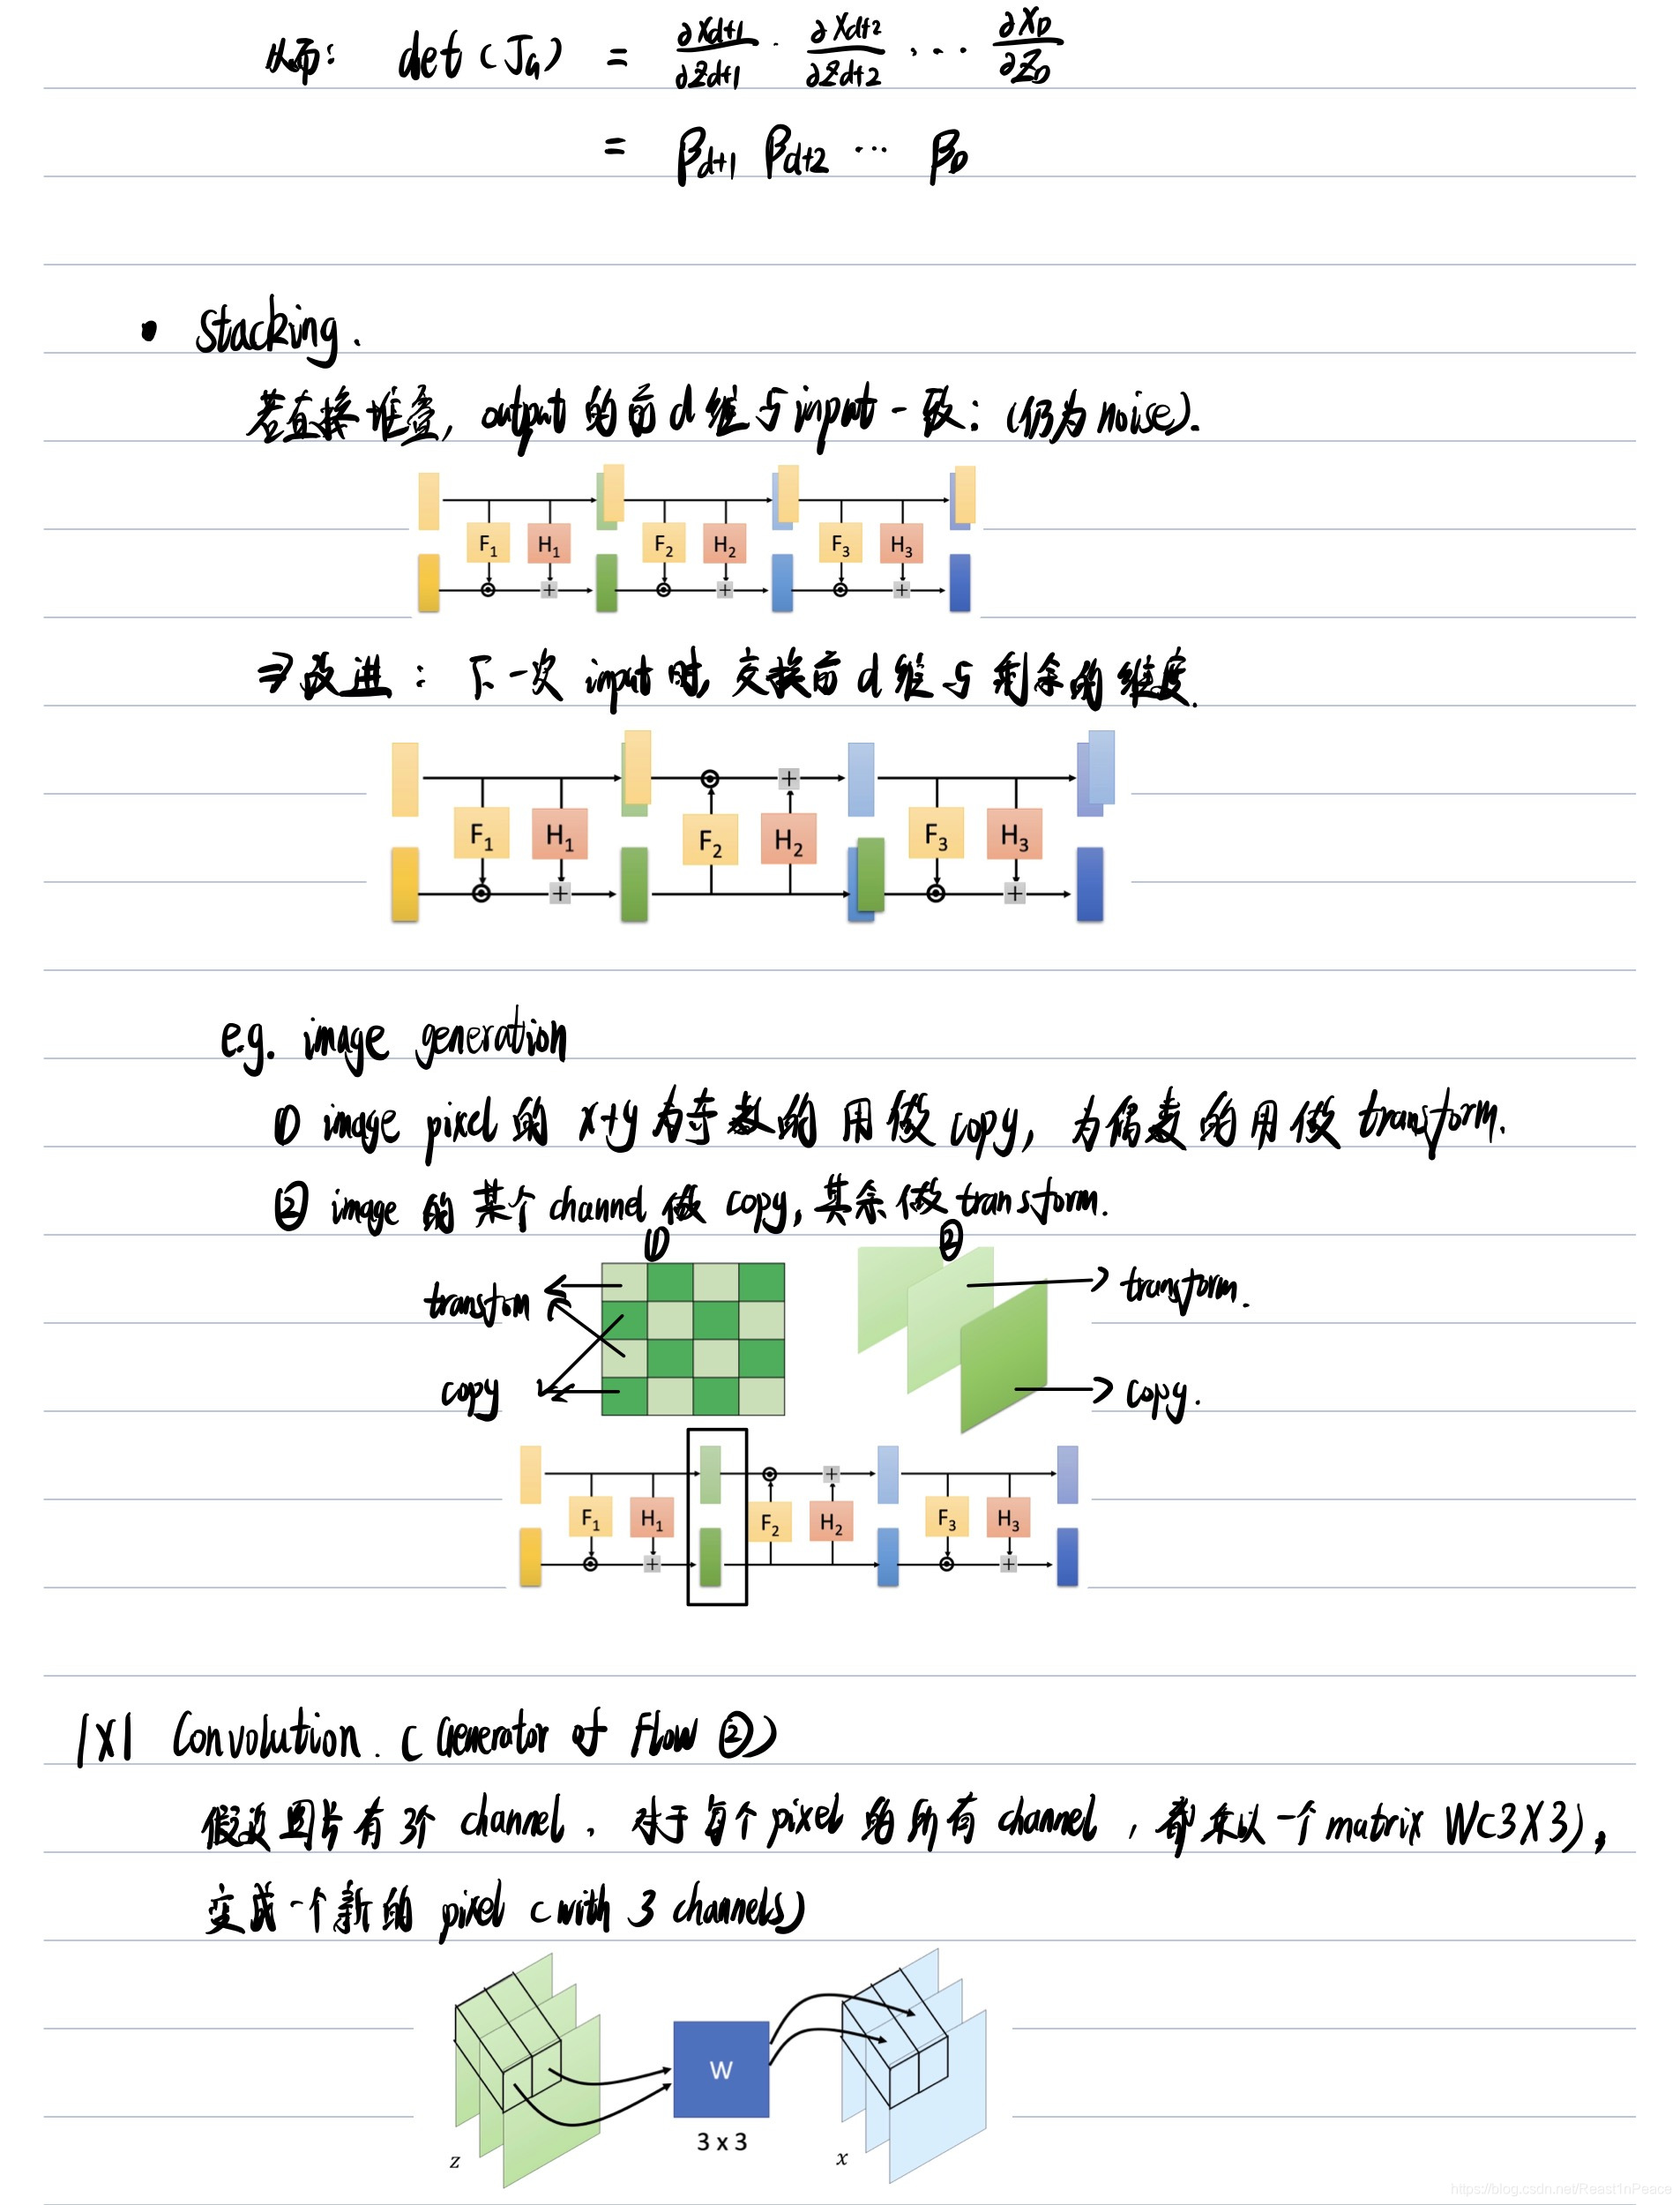 从而: det (J_G) = ∂X_{d+1}/∂Z_{d+1} · ∂X_{d+2}/∂Z_{d+2} ... ∂X_D/∂Z_D
= β_{d+1} β_{d+2} ... β_D
• stacking.
若直接堆叠, output 的前 d 维与 input 一致: (仍为 noise).
F1 H1 F2 H2 F3 H3
⇒ 改进: 下一次 input 时, 交换前 d 维与剩余的维度.
F1 H1 F2 H2 F3 H3
e.g. image generation
① image pixel 的 x+y 为奇数的用做 copy, 为偶数的用做 transform.
② image 的某个 channel 做 copy, 其余做 transform.
① ②
transfom transform.
copy copy.
F1 H1 F2 H2 F3 H3
1X1 Convolution. (Generator of Flow ②)
假设图片有 3个 channel, 对于每个 pixel 的所有 channel, 都乘以一个 matrix W(3X3),
变成一个新的 pixel (with 3 channels)
W
3 x 3
z x
https://blog.csdn.net/Reast1nPeace